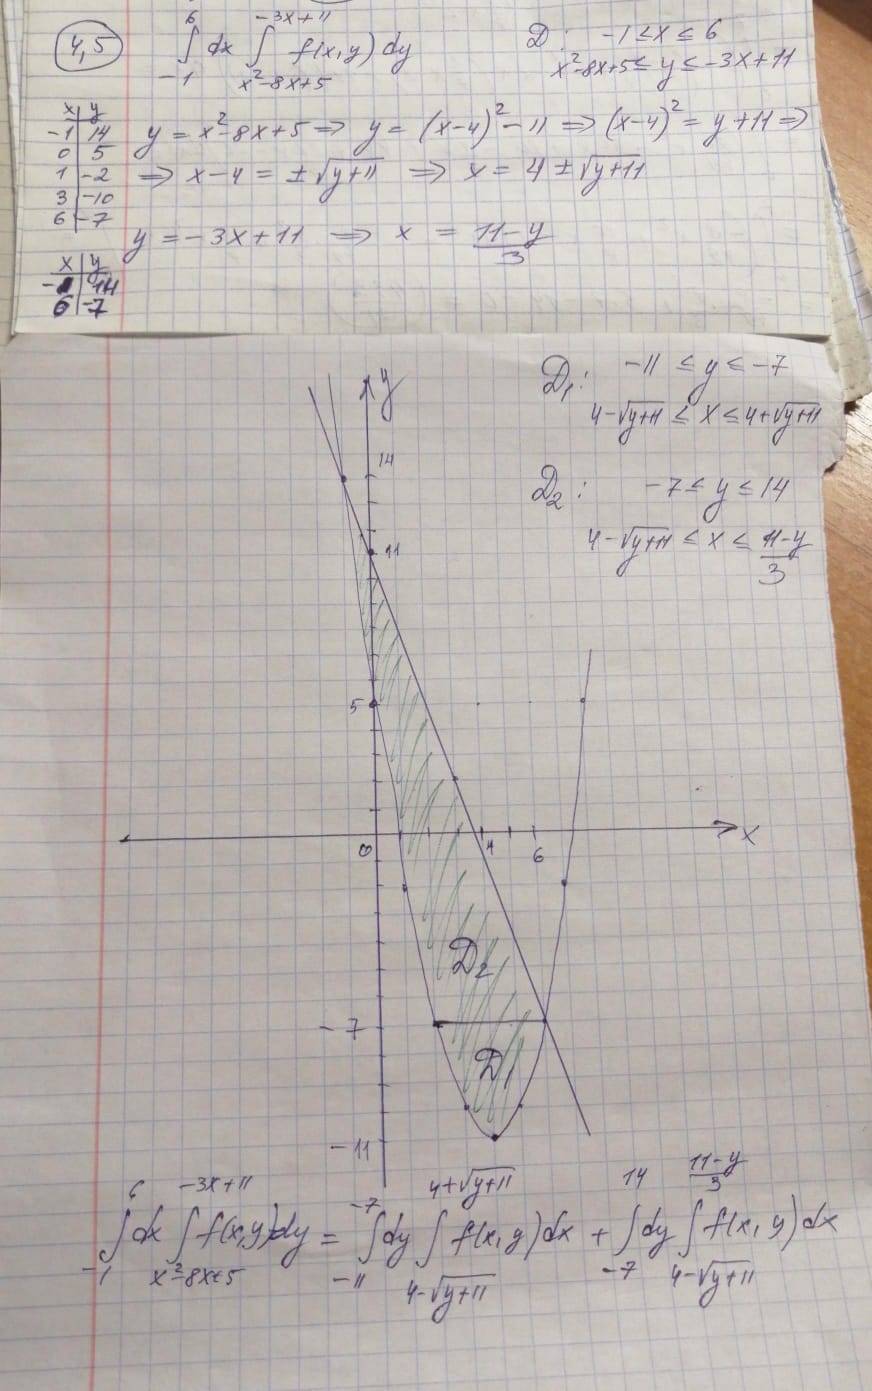 4,5 ∫_{-1}^{6} dx ∫_{x²-8x+5}^{-3x+11} f(x,y) dy D: -1 ≤ x ≤ 6
x²-8x+5 ≤ y ≤ -3x+11
x | y
-1 | 14
0 | 5
1 | -2
3 | -10
6 | -7
y = x²-8x+5 ⇒ y = (x-4)² - 11 ⇒ (x-4)² = y+11 ⇒
⇒ x-4 = ±√(y+11) ⇒ x = 4 ± √(y+11)
y = -3x+11 ⇒ x = (11-y)/3
x | y
-1 | 14
6 | -7
D₁: -11 ≤ y ≤ -7
4-√(y+11) ≤ x ≤ 4+√(y+11)
D₂: -7 ≤ y ≤ 14
4-√(y+11) ≤ x ≤ (11-y)/3
y
14
11
5
0 4 6 x
D₂
-7
D₁
-11
∫_{-1}^{6} dx ∫_{x²-8x+5}^{-3x+11} f(x,y) dy = ∫_{-11}^{-7} dy ∫_{4-√(y+11)}^{4+√(y+11)} f(x,y) dx + ∫_{-7}^{14} dy ∫_{4-√(y+11)}^{(11-y)/3} f(x,y) dx